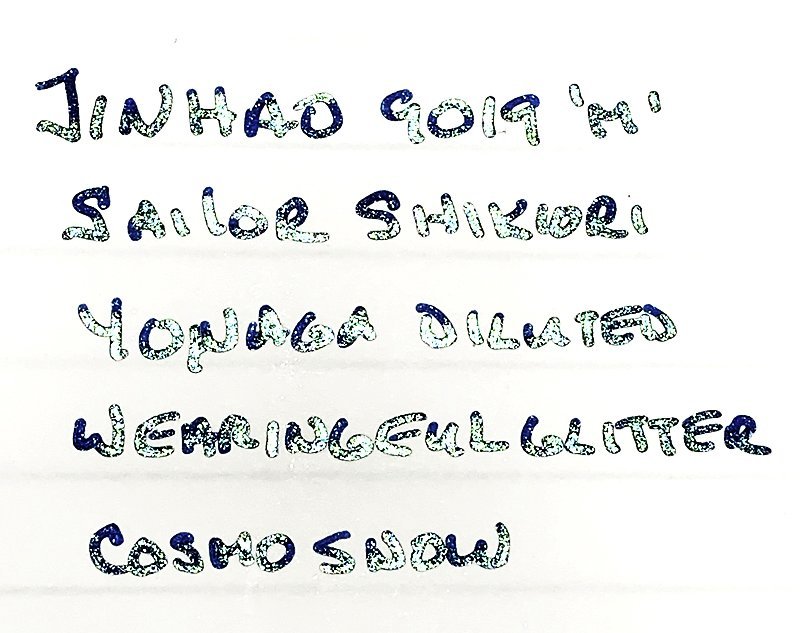 JINHAO 9019 'M'
SAILOR SHIKIORI
YONAGA DILUTED
WEARINGEUL GLITTER
COSMO SNOW